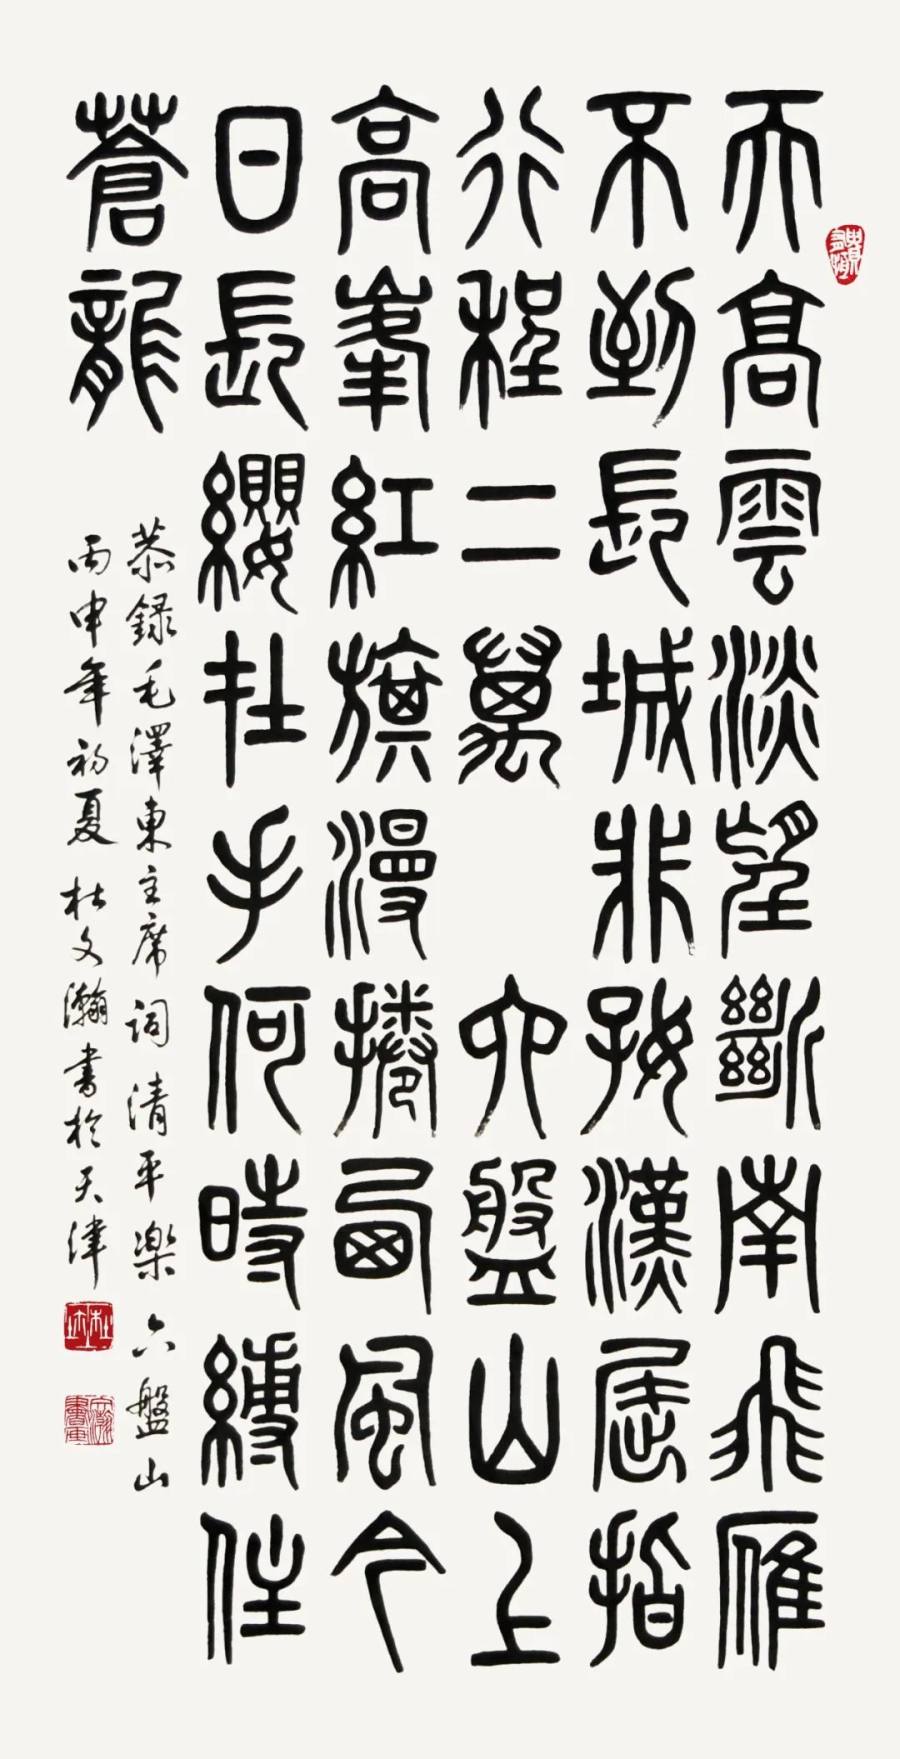 天高雲淡望斷南飛雁
不到長城非好漢屈指
行程二萬 六盤山上
高峯紅旗漫捲西風今
日長纓在手何時縛住
蒼龍
恭錄毛澤東主席詞 清平樂 六盤山
丙申年初夏 杜文瀚書於天津